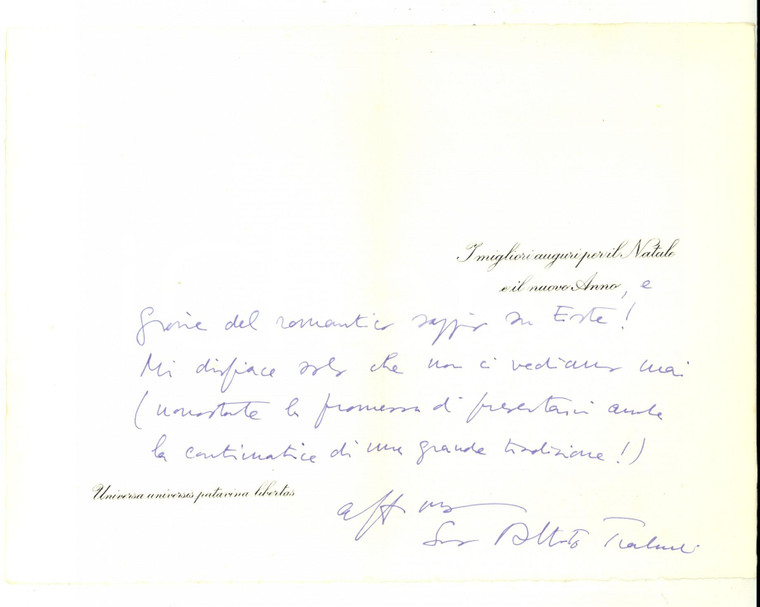 I migliori auguri per il Natale
e il nuovo Anno, e
grazie del romantico saggio su Este!
Mi dispiace solo che non ci vediamo mai
(nonostante la promessa di presentarci anche
la continuatrice di una grande tradizione!)
Universa universis patavina libertas
aff.mo
Suo Alberto